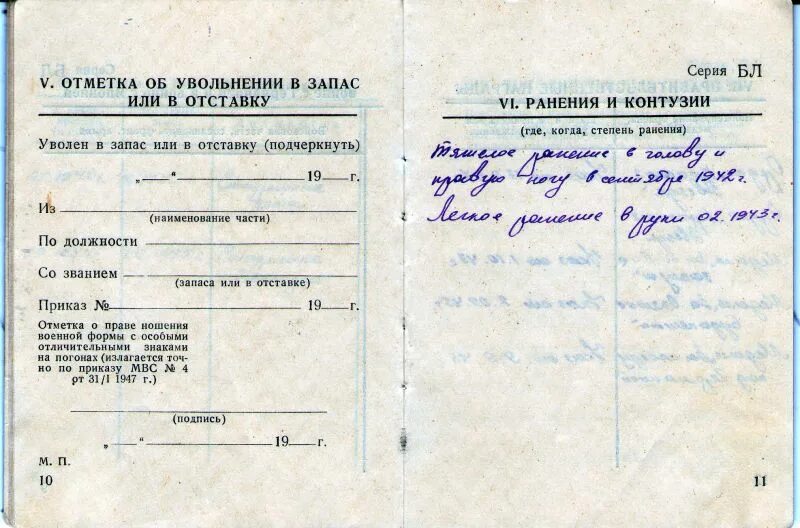 V. ОТМЕТКА ОБ УВОЛЬНЕНИИ В ЗАПАС
ИЛИ В ОТСТАВКУ
Уволен в запас или в отставку (подчеркнуть)
„ — “ 19 — г.
Из
(наименование части)
По должности
Со званием
(запаса или в отставке)
Приказ № 19 — г.
Отметка о праве ношения
военной формы с особыми
отличительными знаками
на погонах (излагается точ-
но по приказу МВС № 4
от 31/I 1947 г.)
(подпись)
„ — “ 19 — г.
М. П.
10
Серия БЛ
VI. РАНЕНИЯ И КОНТУЗИИ
(где, когда, степень ранения)
Тяжелое ранение в голову и
правую ногу в сентябре 1942 г.
Легкое ранение в руки 02.1943 г.
11